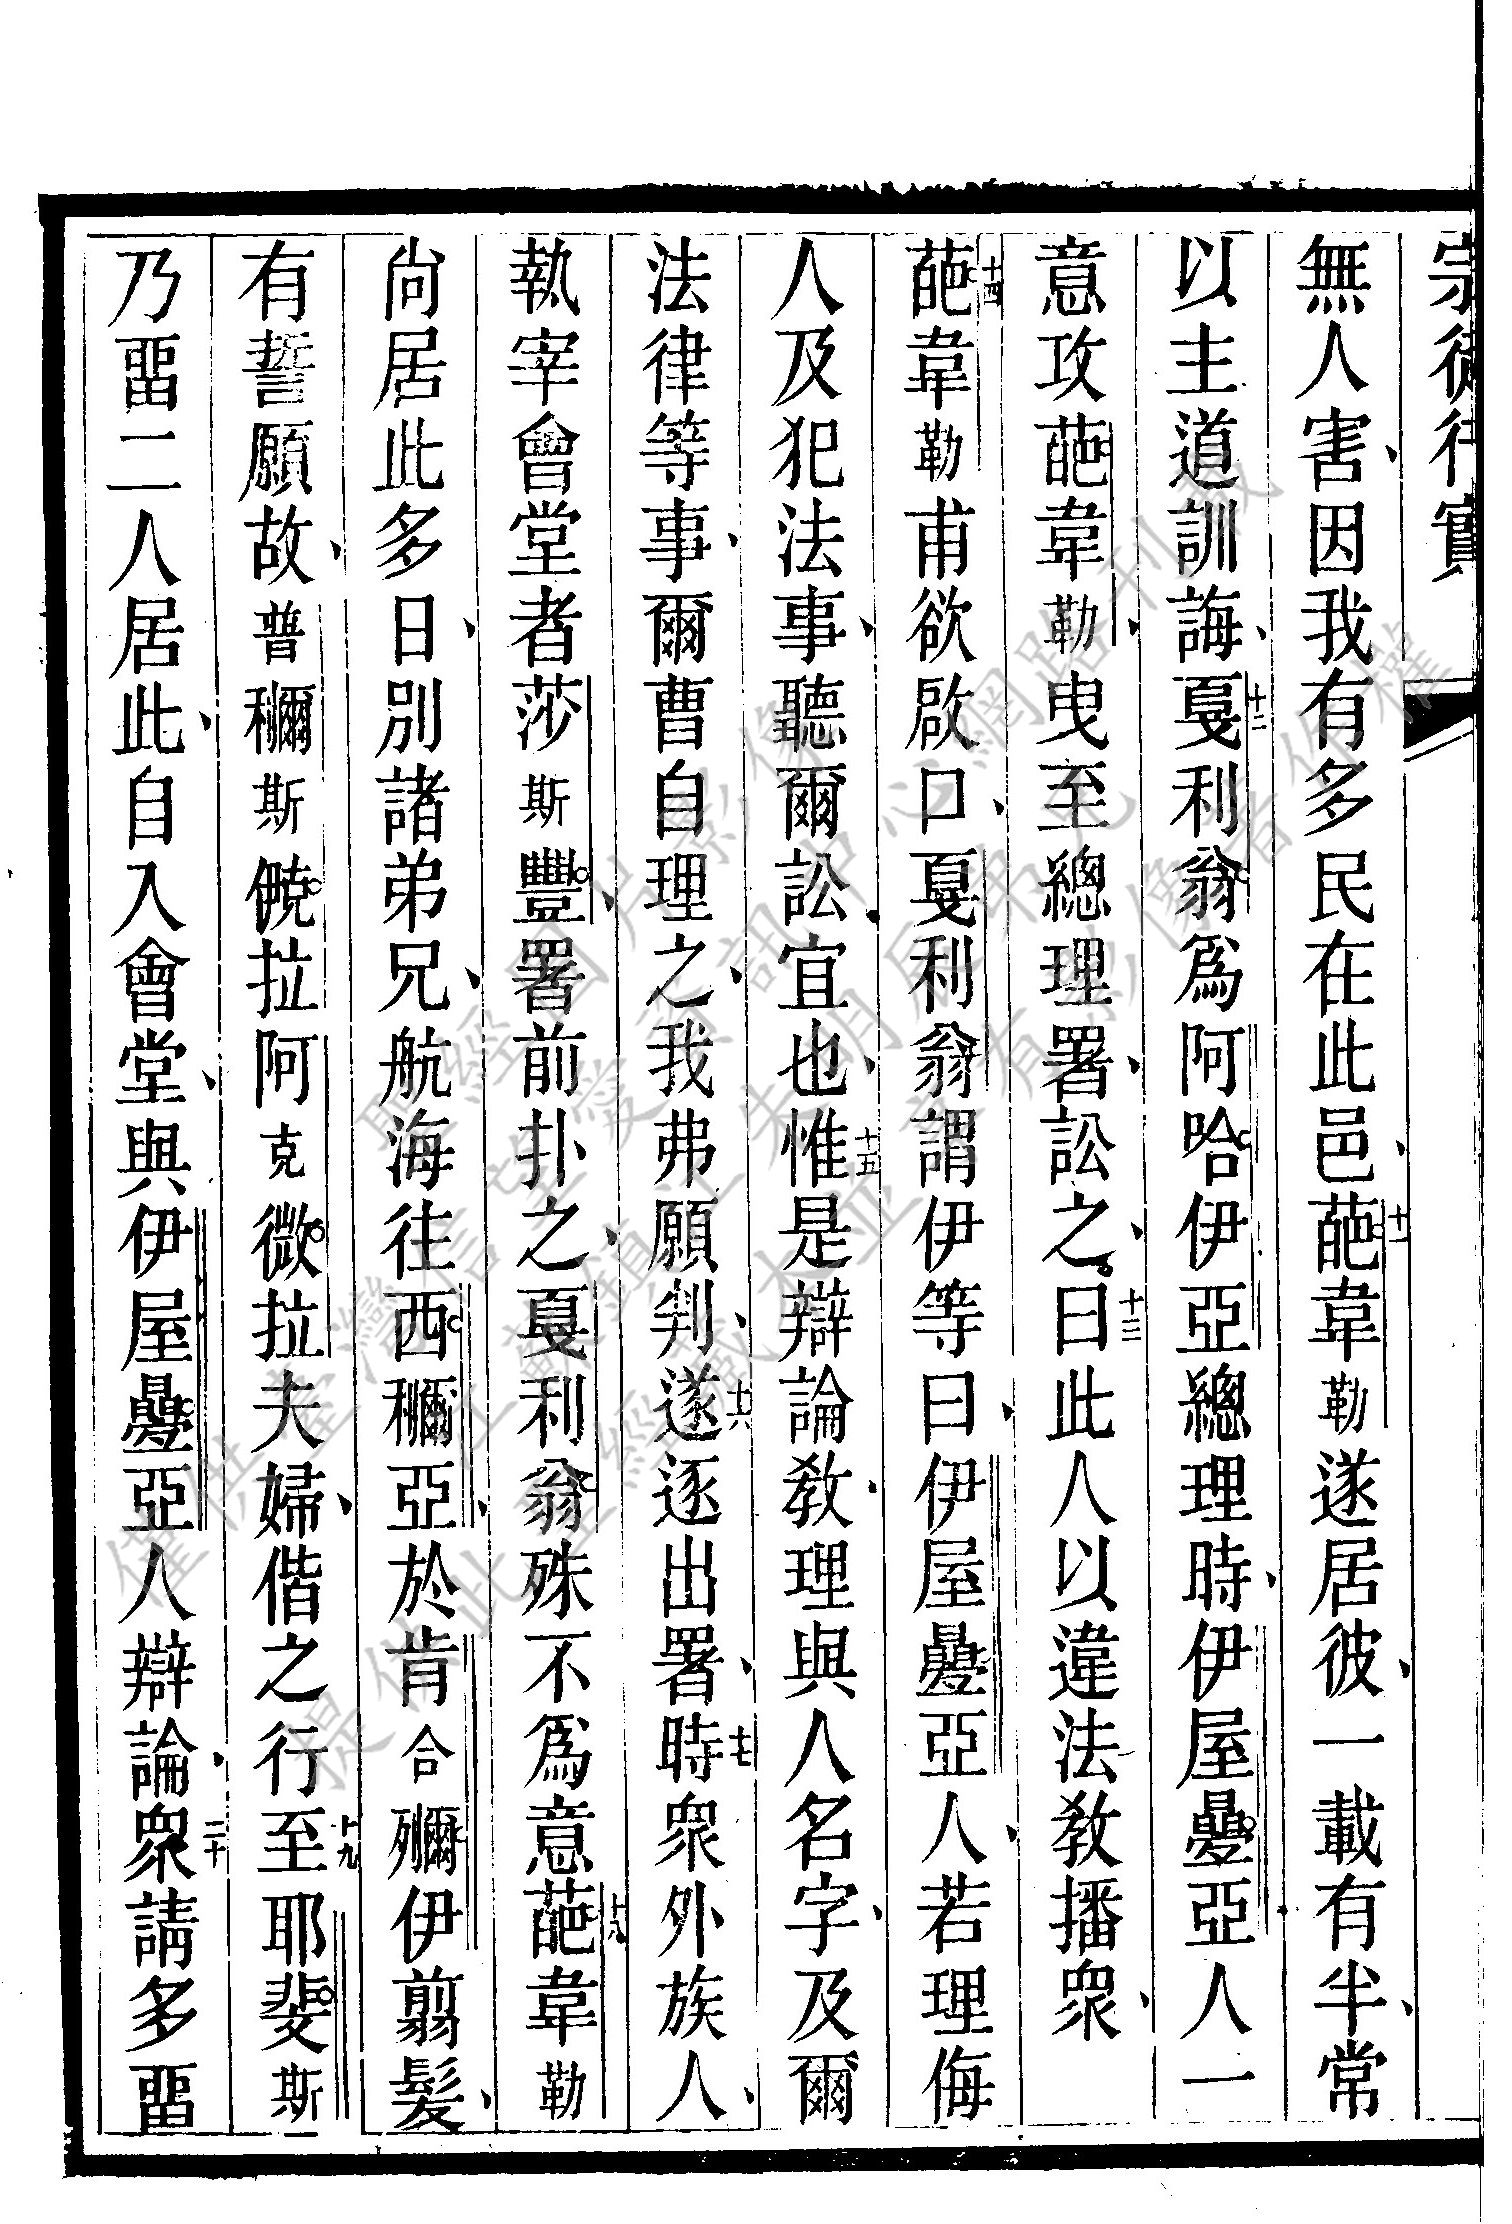 宗徒行實
無人害、因我有多民在此邑、十一葩韋勒遂居彼、一載有半、常
以主道訓誨、十二戛利翁爲阿哈伊亞總理時、伊屋疊亞人一
意攻葩韋勒、曳至總理署、訟之、十三曰此人以違法教播衆、
十四葩韋勒甫欲啟口、戛利翁謂伊等曰、伊屋疊亞人、若理侮
人及犯法事、聽爾訟宜也、十五惟是辯論教、理與人名字、及爾
法律等事、爾曹自理之、我弗願判、十六遂逐出署、十七時衆外族人、
執宰會堂者莎斯豐、署前扑之、戛利翁殊不爲意、十八葩韋勒
尚居此多日、別諸弟兄、航海往西穪亞、於肯合彌伊翦髮、
有誓願故、普穪斯僥拉阿克微拉夫婦、偕之行、十九至耶斐斯
乃畱二人居此、自入會堂、與伊屋疊亞人辯論、二十衆請多畱